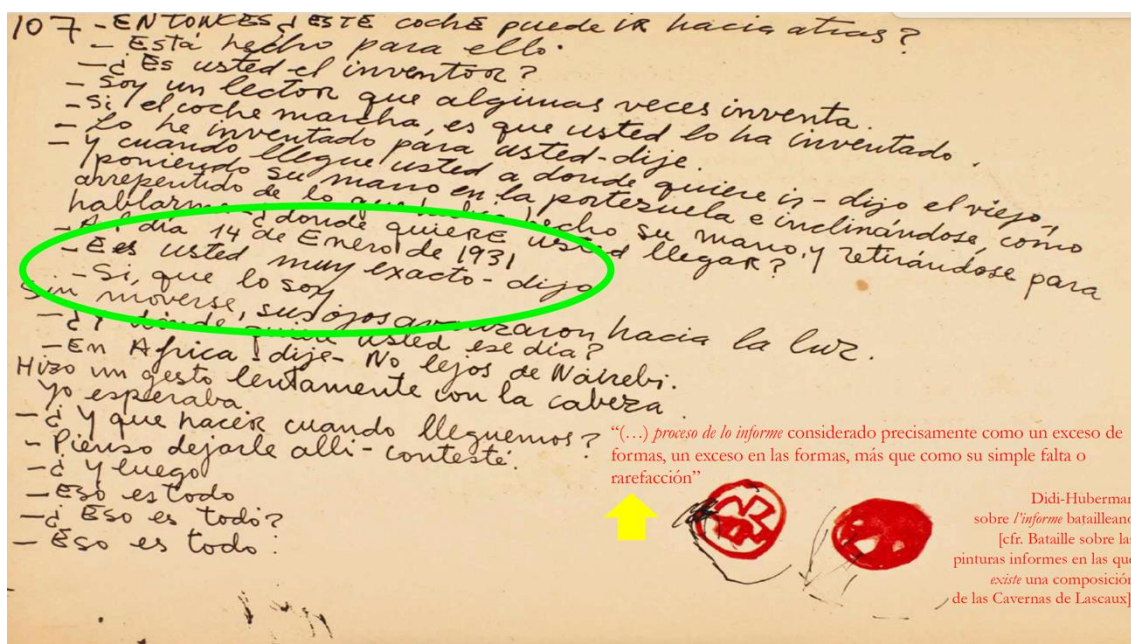 107 - ENTONCES ¿ESTE coche puede iR hacia atras?
- Está hecho para ello.
- ¿Es usted el inventor?
- Soy un lector que algunas veces inventa.
- Si el coche marcha, es que usted lo ha inventado.
- Lo he inventado para usted - dije.
- Y cuando llegue usted a donde quiere ir - dijo el viejo,
poniendo su mano en la portezuela e inclinándose, como
arrepentido de lo que había hecho su mano, y retirándose para
hablarme - ¿donde quiERE usted llegaR?
- Al día 14 de Enero de 1931
- Es usted muy exacto - dijo
- Si, que lo soy
Sin moverse, sus ojos avanzaron hacia la luz.
- ¿Y dónde quiere usted ese día?
- En Africa - dije - No lejos de Nairebi.
Hizo un gesto lentamente con la cabeza.
Yo esperaba.
- ¿Y que hacer cuando lleguemos?
- Pienso dejarle alli - contesté.
- ¿Y luego
- Eso es todo
- ¿Eso es todo?
- Eso es todo.
“(…) proceso de lo informe considerado precisamente como un exceso de
formas, un exceso en las formas, más que como su simple falta o
rarefacción”
Didi-Huberman
sobre l'informe batailleano
[cfr. Bataille sobre las
pinturas informes en las que
existe una composición
de las Cavernas de Lascaux]